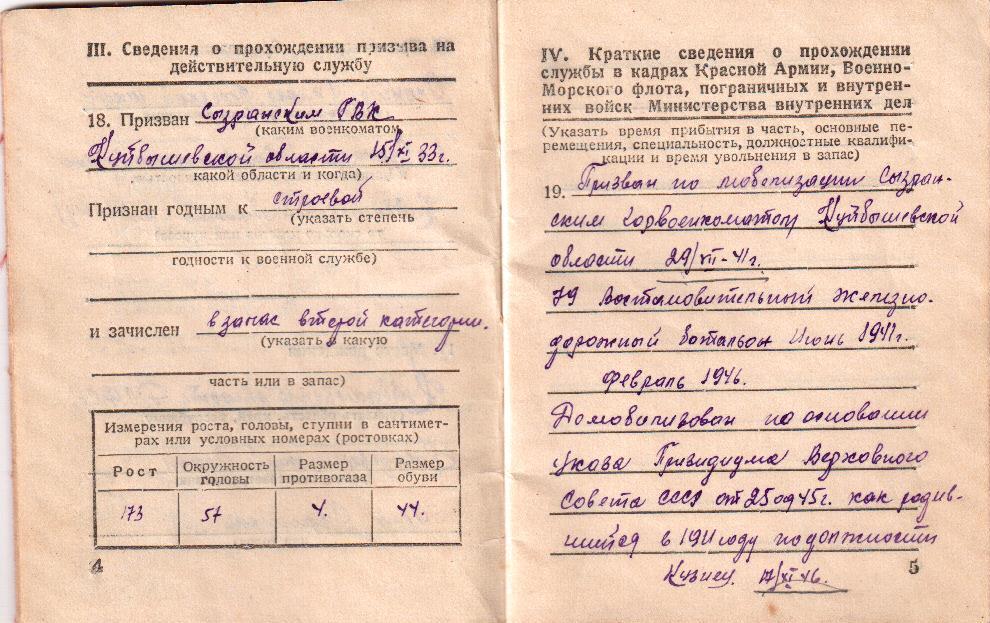 III. Сведения о прохождении призыва на
действительную службу
18. Призван Сызранским ГВК
(каким военкоматом,
Куйбышевской области 15/XI 33г.
какой области и когда)
Признан годным к строевой
(указать степень
годности к военной службе)
и зачислен в запас второй категории.
(указать в какую
часть или в запас)
Измерения роста, головы, ступни в сантимет-
рах или условных номерах (ростовках)
Рост Окружность головы Размер противогаза Размер обуви
173 57 4. 44.
4
IV. Краткие сведения о прохождении
службы в кадрах Красной Армии, Военно-
Морского флота, пограничных и внутрен-
них войск Министерства внутренних дел
(Указать время прибытия в часть, основные пе-
ремещения, специальность, должностные квалифи-
кации и время увольнения в запас)
19. Призван по мобелизации Сызран-
ским горвоенкоматом Куйбышевской
области 29/VII-41г.
79 Востановительный железно-
дорожный батальон Июнь 1941г.
Февраль 1946.
Домобилизован на основании
указа Призидиума Верховного
Совета СССР от 25 09 45г. как родив-
шийся в 1911 году по должности
Кузнец. 17/XI 46.
5